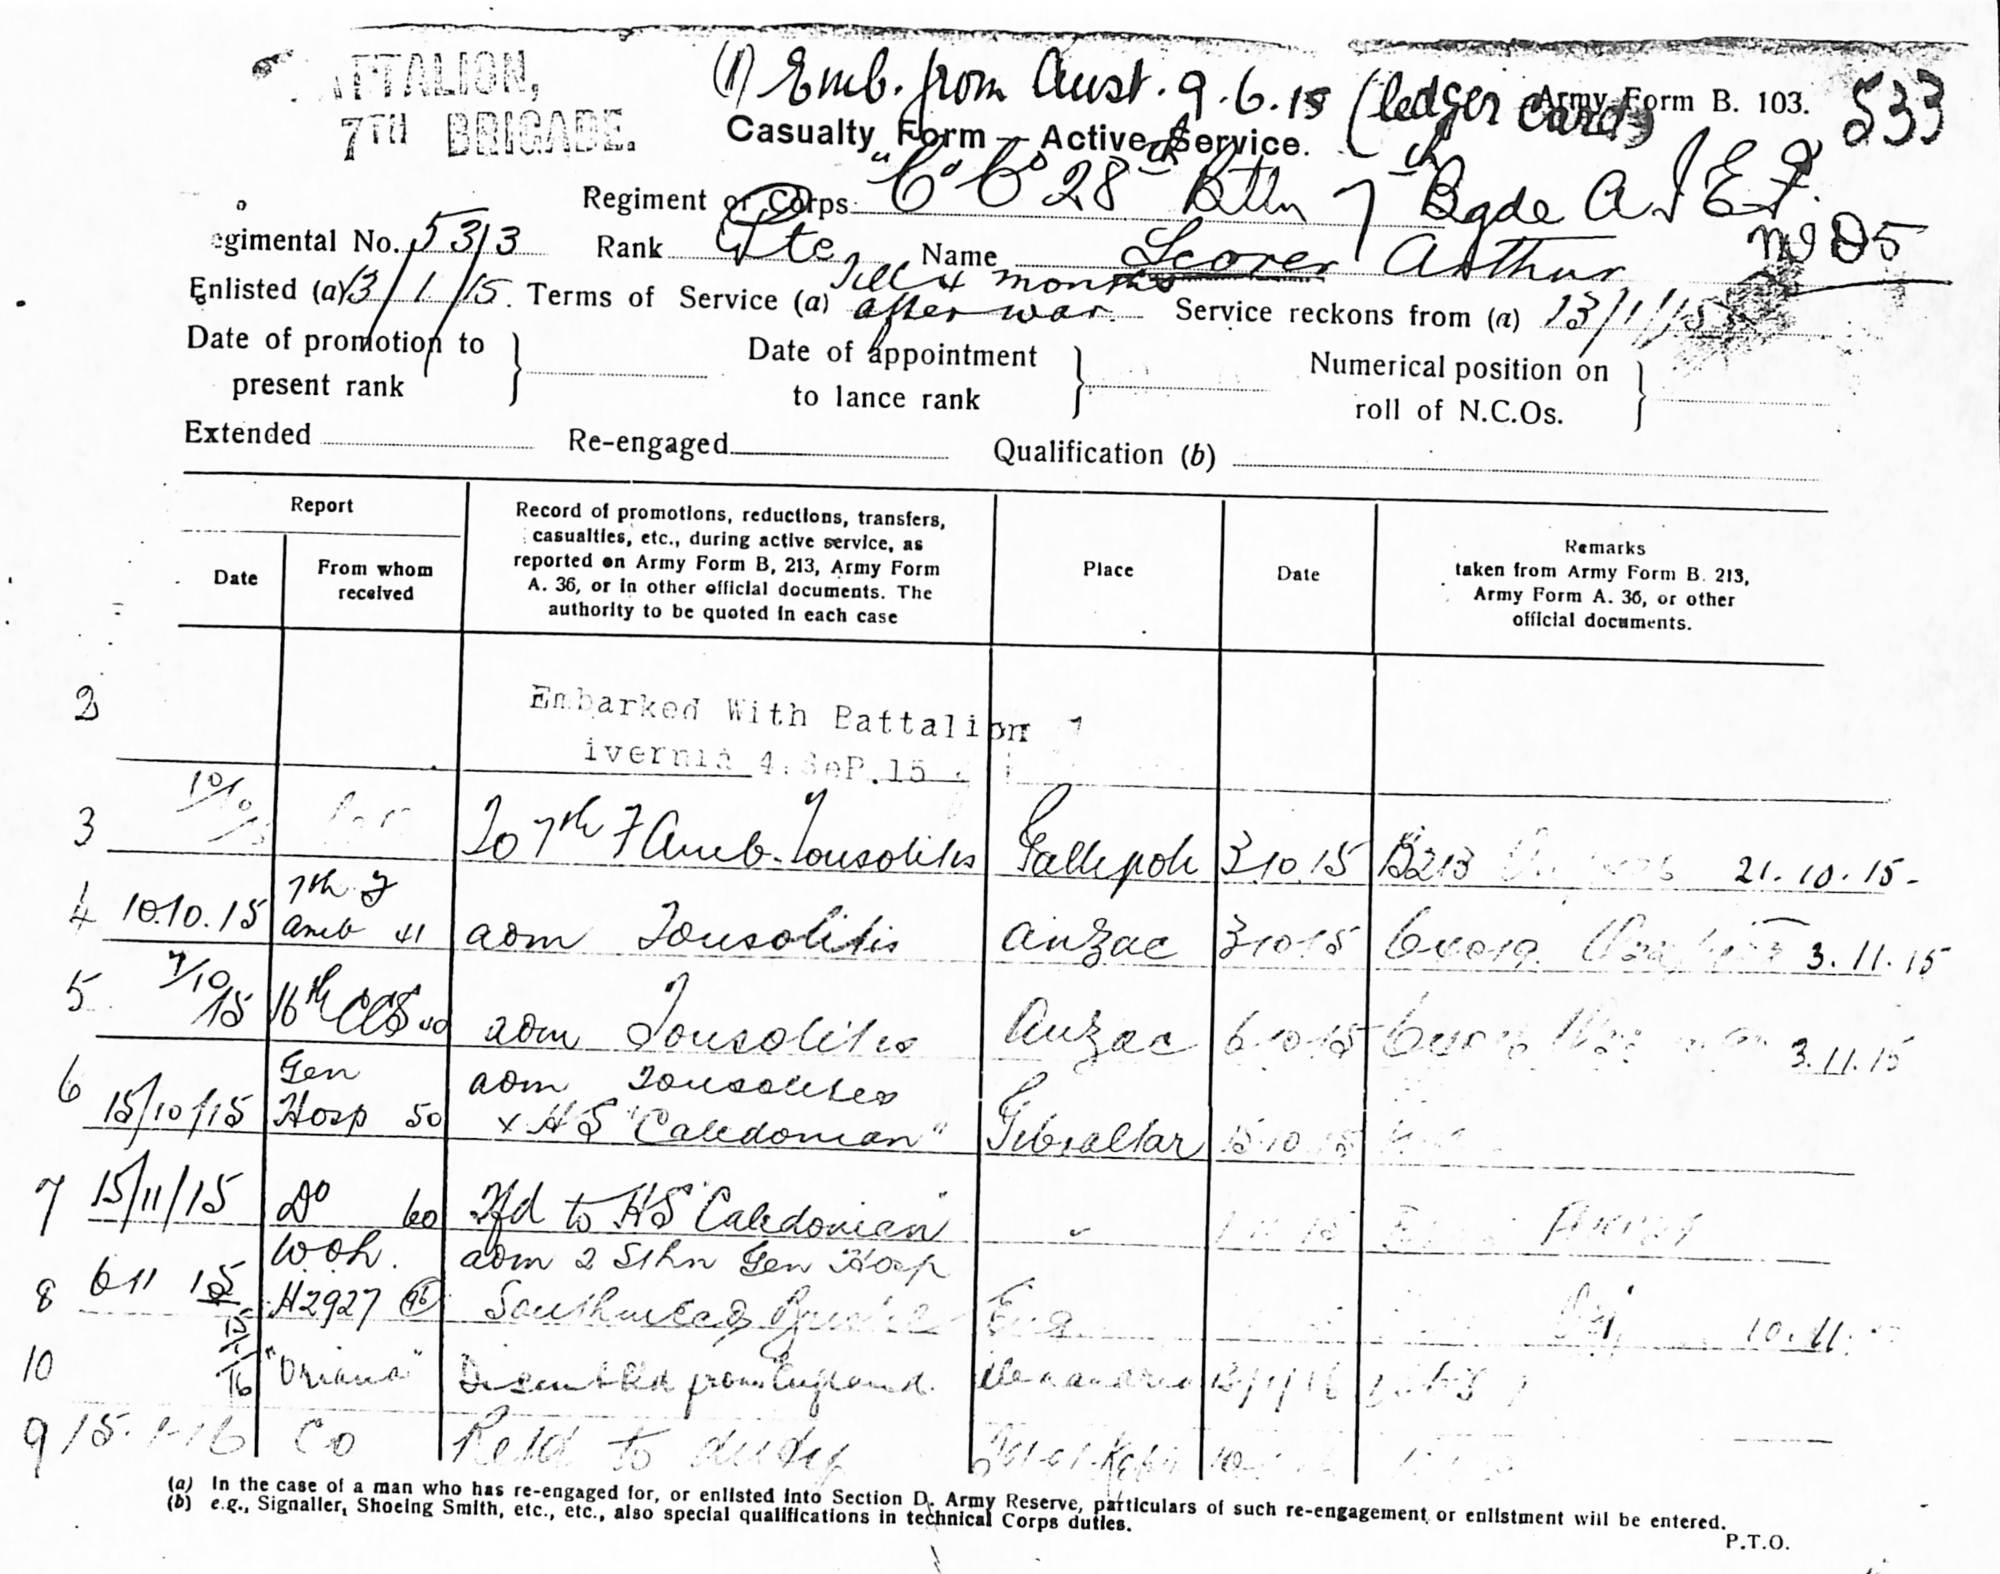 ATTALION,
7TH BRIGADE.
(1) Emb. from Aust. 9.6.15 (ledger card)
Army Form B. 103.
533
Casualty Form — Active Service.
Regiment or Corps "C" Co 28th Bttn 7th Bgde A I E F.
egimental No. 533 Rank Pte Name Scorer Arthur
Enlisted (a) 13/1/15. Terms of Service (a) Till 4 months after war. Service reckons from (a) 13/1/15
Date of promotion to present rank
Date of appointment to lance rank
Numerical position on roll of N.C.Os.
Extended Re-engaged Qualification (b)
Report
Date
From whom received
Record of promotions, reductions, transfers,
casualties, etc., during active service, as
reported on Army Form B, 213, Army Form
A. 36, or in other official documents. The
authority to be quoted in each case
Place
Date
Remarks
taken from Army Form B. 213,
Army Form A. 36, or other
official documents.
2 Embarked With Battalion
ivernia 4.SeP.15
3 To 7th F Amb. Tonsolitis Gallepoli 3.10.15 B213 21.10.15-
4 10.10.15 7th F Amb 41 adm Tonsolitis Anzac 3.10.15 3.11.15
5 7/10/15 16th CCS 40 adm Tonsolitis Anzac 6.10.15 3.11.15
6 15/10/15 Gen Hosp 50 adm Tonsolites
x H S "Caledonian" Gibraltar 15.10.15
7 15/11/15 Do 60 Tfd to HS "Caledonian"
8 6 11 15 W.O.H. H2927 adm 2 Sthn Gen Hosp
Southmead Eng 10.11.
10 "Oriana" Disembked from England. Alexandria 12/1/16
9 15.1.16 CO Retd to duty
(a) In the case of a man who has re-engaged for, or enlisted into Section D. Army Reserve, particulars of such re-engagement or enlistment will be entered.
(b) e.g., Signaller, Shoeing Smith, etc., etc., also special qualifications in technical Corps duties.
P.T.O.